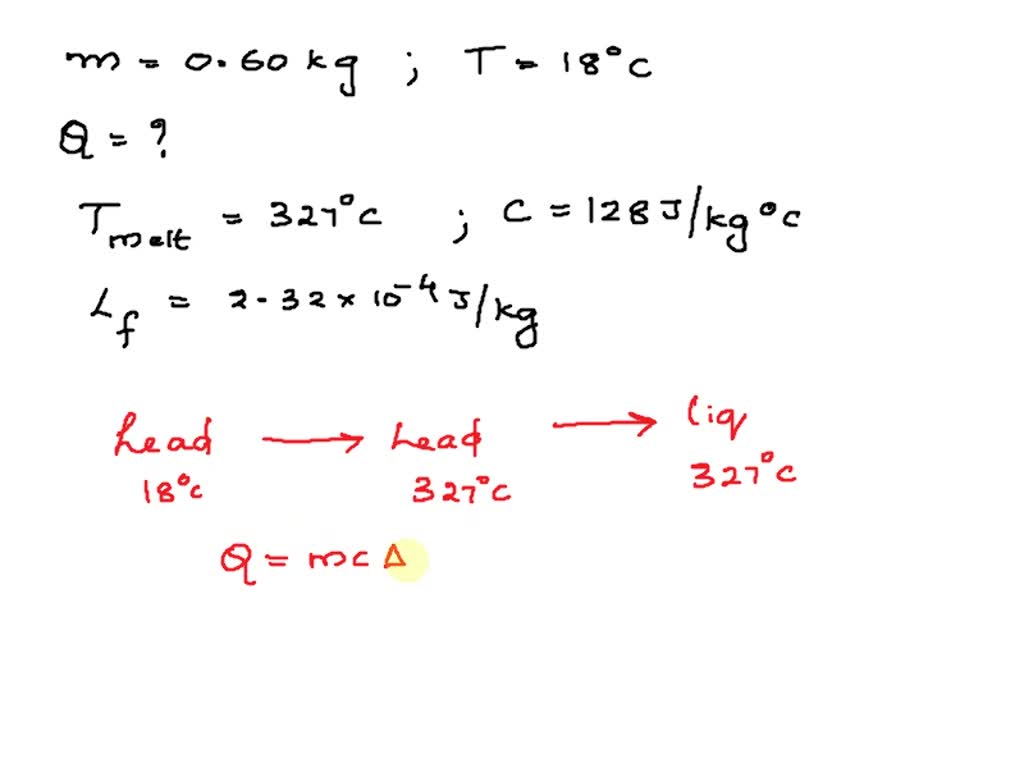 m = 0.60 kg ; T = 18°C
Q = ?
T melt = 327°C ; C = 128 J/kg°C
Lf = 2.32 × 10⁻⁴ J/kg
Lead → Lead → liq
18°C 327°C 327°C
Q = mc Δ